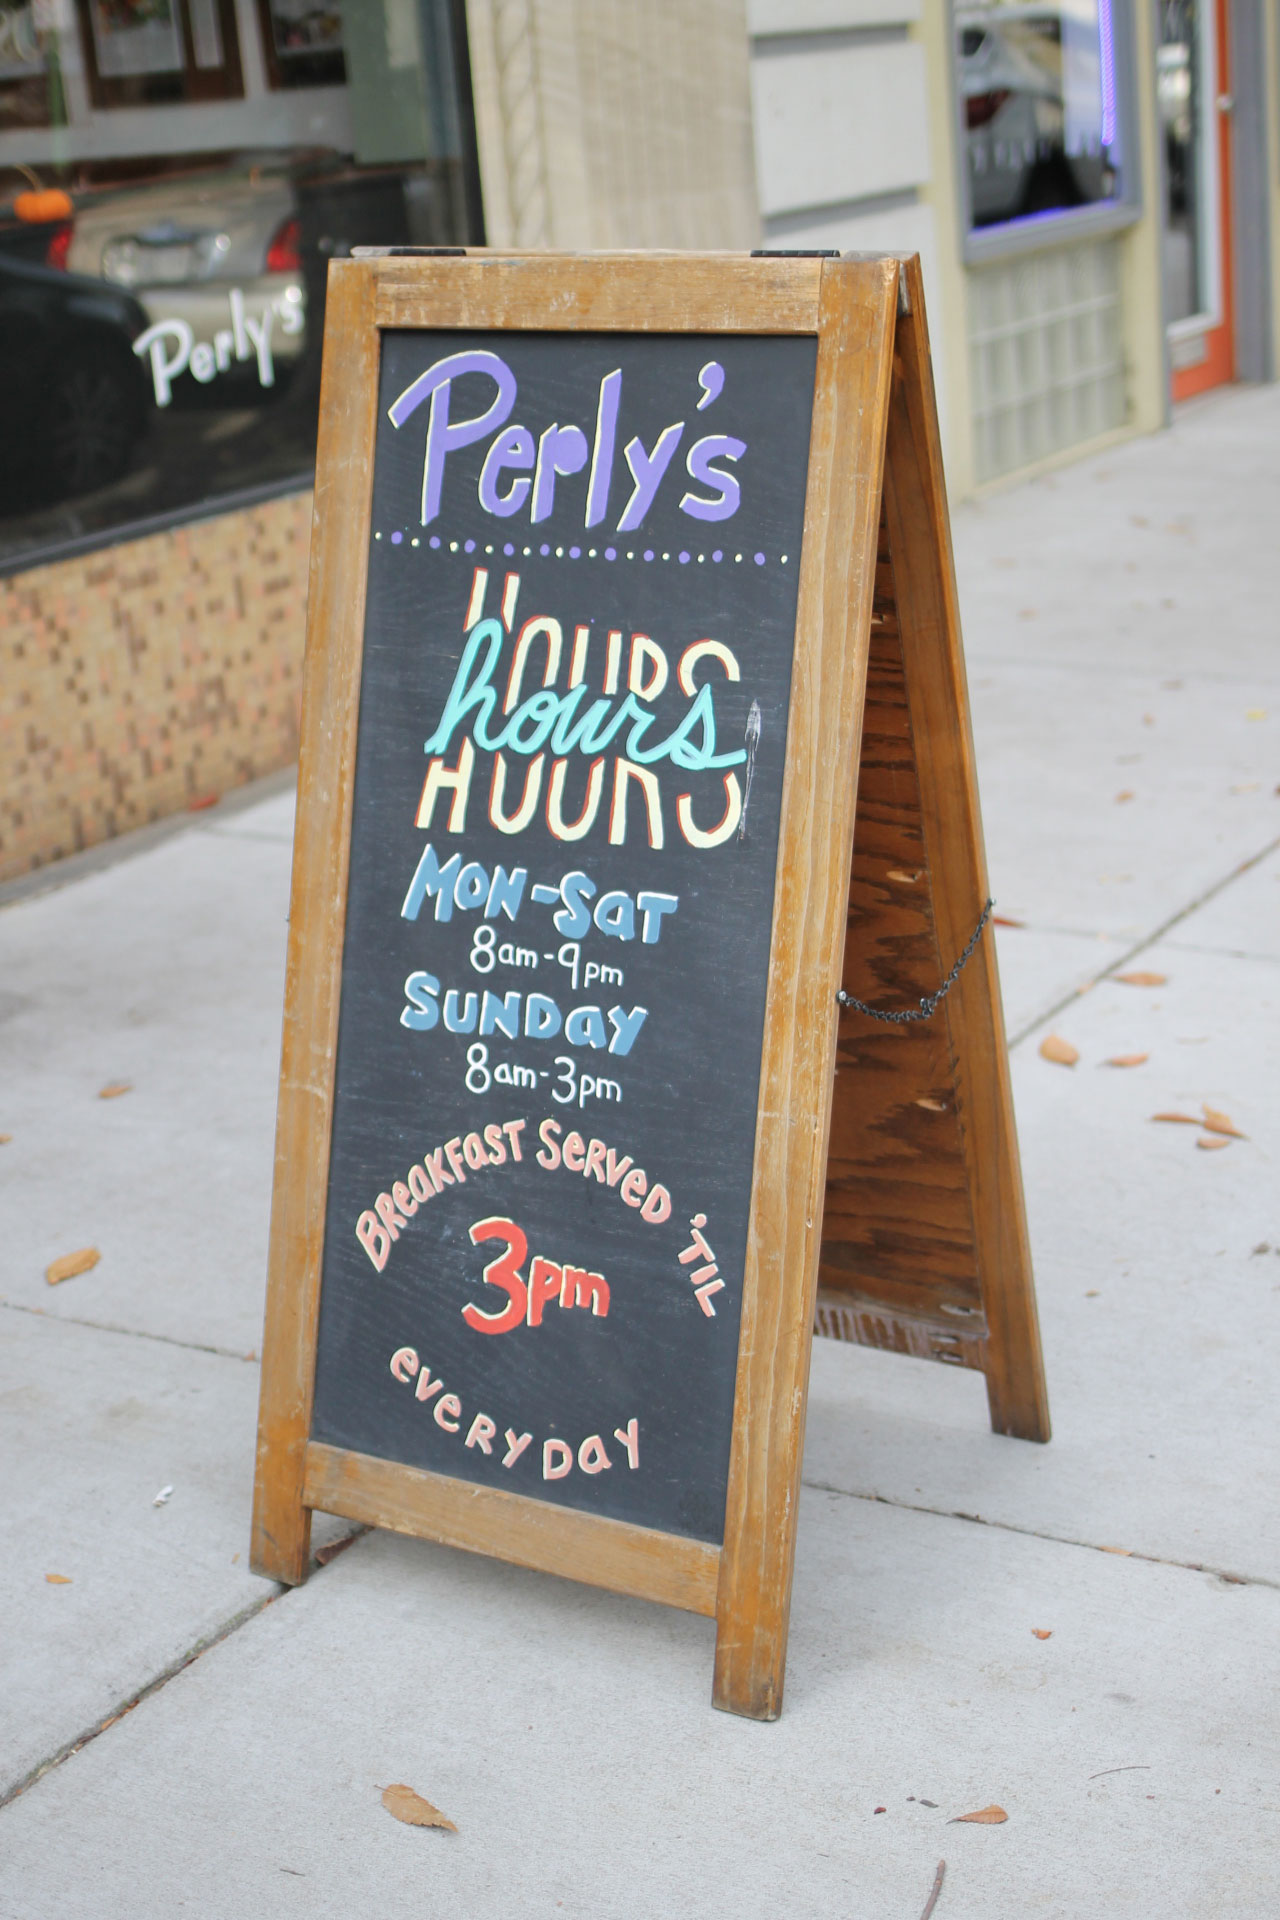 Perly's
Perly's
HOURS
hours
MON-SaT
8am-9pm
SUNDay
8am-3pm
BReaKFaST SeRVeD 'TIL
3pm
eVeRYDay